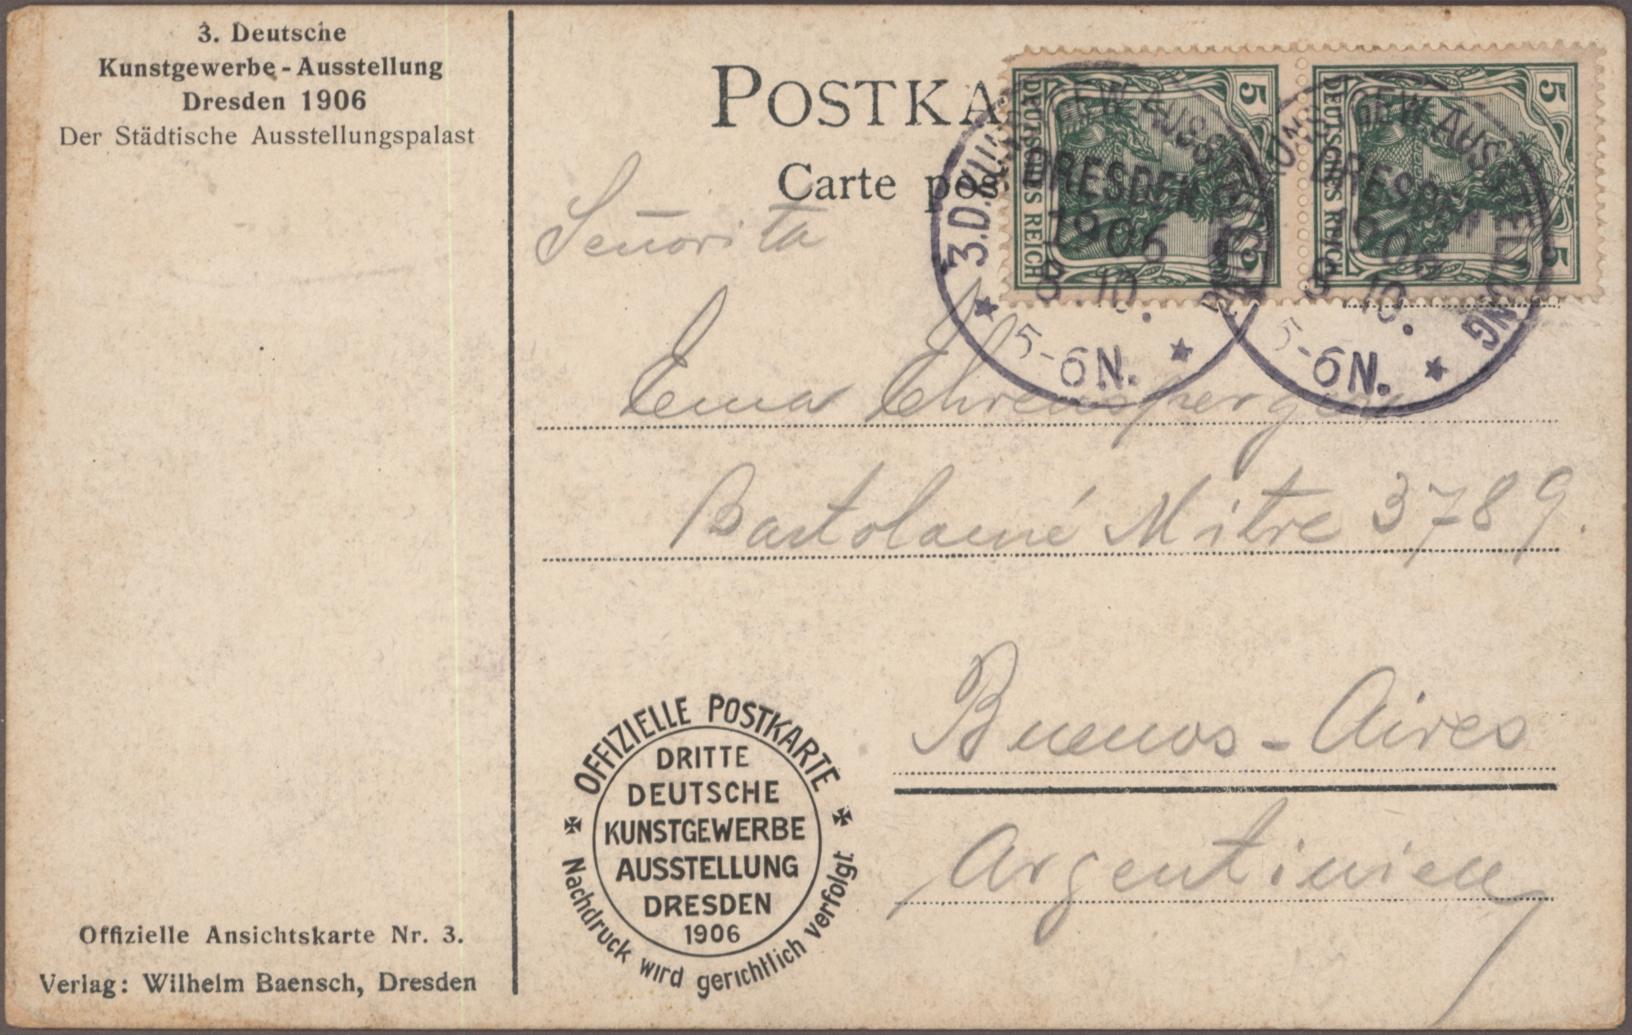 3. Deutsche
Kunstgewerbe-Ausstellung
Dresden 1906
Der Städtische Ausstellungspalast
POSTKA
Carte pos
5 5
DEUTSCHES REICH
5 5
DEUTSCHES REICH
3.D.KUNSTGEW-AUSSTELLUNG
DRESDEN
1906
8.10.
5-6N.
KUNSTGEW-AUSSTELLUNG
DRESDEN
1906
8.10.
5-6N.
Señorita
Ema Ehrensperger
Bartolomé Mitre 3789.
Buenos-Aires
Argentinien
OFFIZIELLE POSTKARTE
DRITTE
DEUTSCHE
KUNSTGEWERBE
AUSSTELLUNG
DRESDEN
1906
Nachdruck wird gerichtlich verfolgt
Offizielle Ansichtskarte Nr. 3.
Verlag: Wilhelm Baensch, Dresden